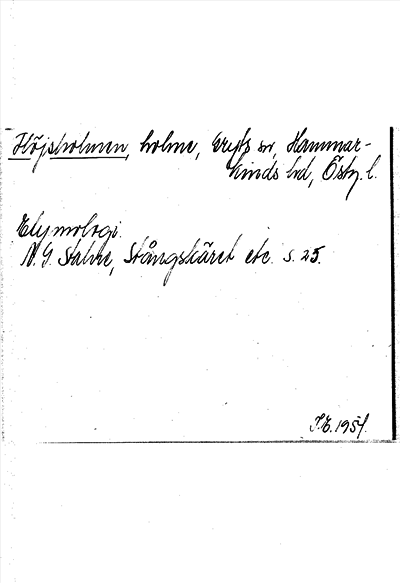 Flöjsholmen, holme, Gryts sn, Hammar-
kinds hd, Östg. l.
Etymologi.
N. G. Stahre, Stångskäret etc. s. 25.
1951.